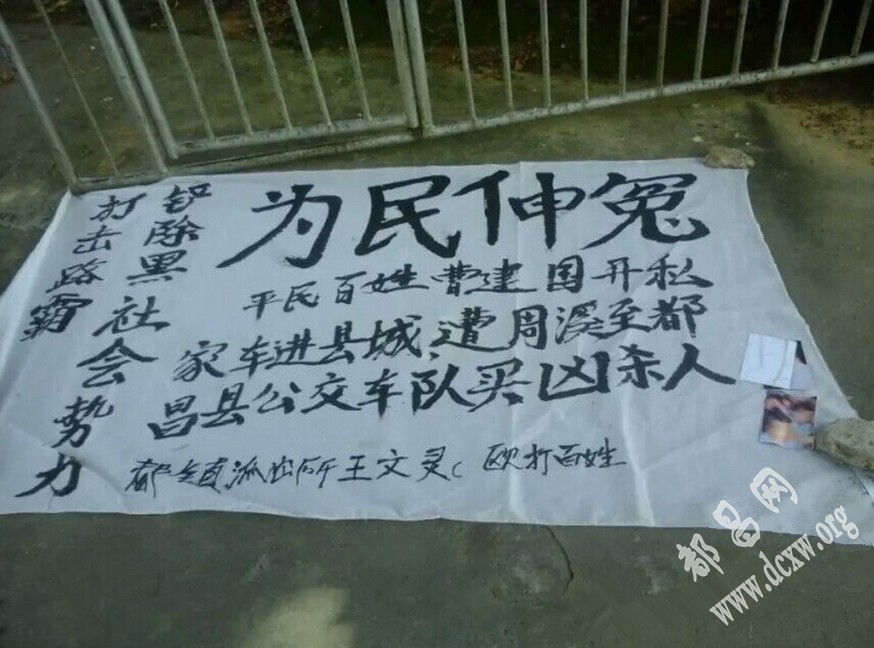 为民伸冤
平民百姓曹建国开私
家车进县城,遭周溪至都
昌县公交车队买凶杀人
都镇派出所王文灵(欧打百姓
铲除黑社会势力
打击路霸
都昌网
www.dcxw.org